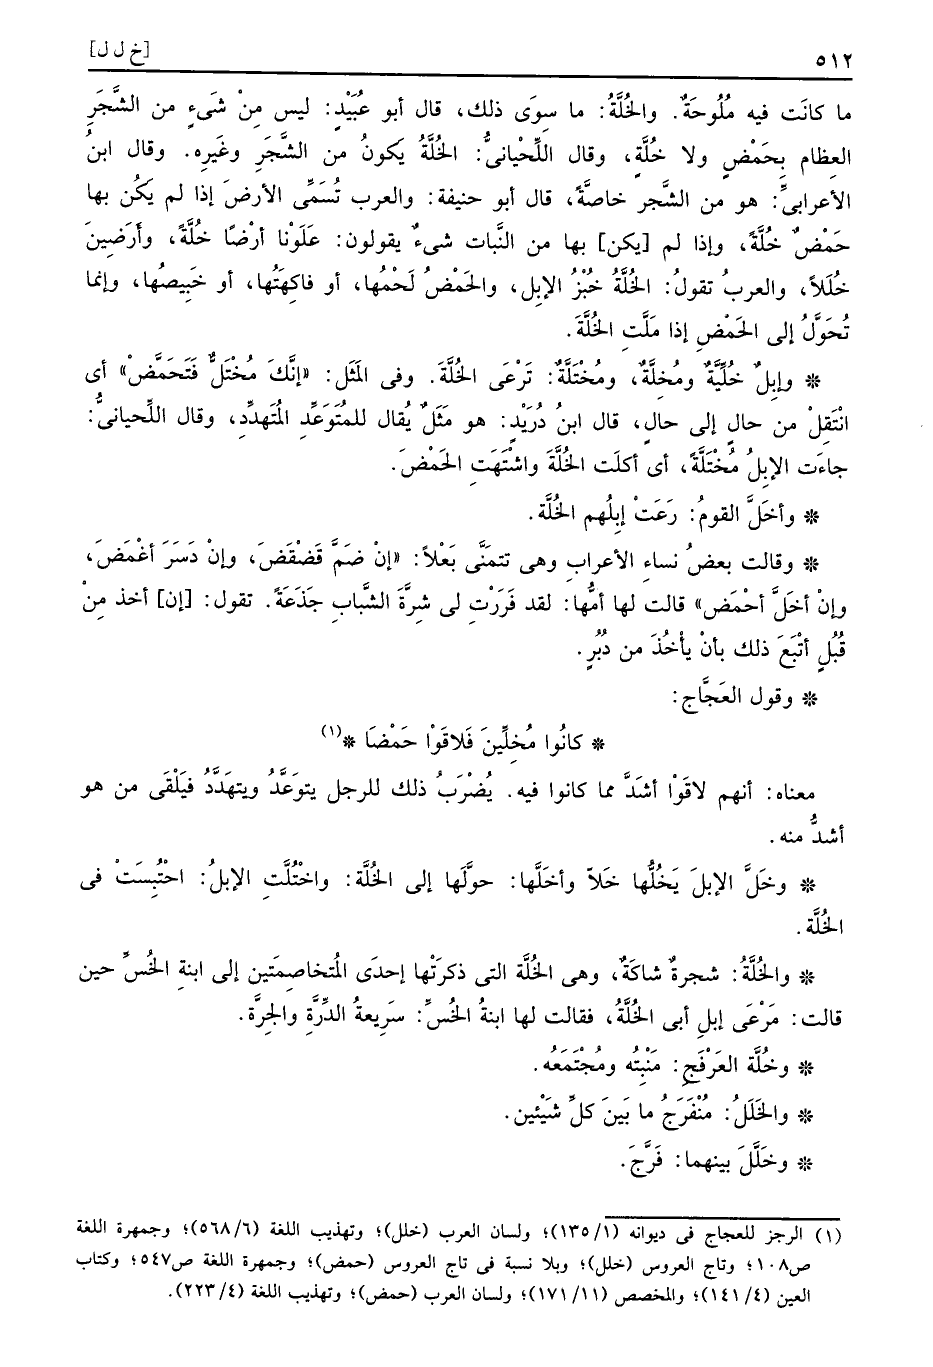 ٥١٢ [خ ل ل]
ما كانَت فيه مُلُوحَةٌ. والخُلَّةُ: ما سوَى ذلك، قال أبو عُبَيْدٍ: ليس مِنْ شَىءٍ من الشَّجَرِ
العظام بِحَمْضٍ ولا خُلَّةٍ، وقال اللِّحْيانىُّ: الخُلَّةُ يكونُ من الشَّجَرِ وغَيرِه. وقال ابنُ
الأعرابىِّ: هو من الشَّجر خاصَّةً، قال أبو حنيفة: والعرب تُسَمِّى الأرضَ إذا لم يكُن بها
حَمْضٌ خُلَّةً، وإذا لم [يكن] بها من النَّبات شىءٌ يقولون: عَلَوْنا أرضًا خُلَّةً، وأرَضِينَ
خُلَلاً، والعربُ تقولُ: الخُلَّةُ خُبْزُ الإبل، والحَمْضُ لَحْمُها، أو فاكهَتُها، أو خَبِيصُها، وإنما
تُحَوَّلُ إلى الحَمْضِ إذا مَلَّتِ الخُلَّةَ.
* وإبلٌ خُلِّيَّةٌ ومُخِلَّةٌ، ومُخْتَلَّةٌ: تَرْعَى الخُلَّةَ. وفى المَثَل: «إنَّكَ مُخْتَلٌّ فَتَحَمَّض» أى
انْتَقِلْ من حالٍ إلى حالٍ، قال ابنُ دُرَيْدٍ: هو مَثَلٌ يُقال للمُتَوَعِّدِ المُتَهدِّدِ، وقال اللِّحيانىُّ:
جاءَت الإبلُ مُخْتَلَّةً، أى أكلَت الخُلَّةَ واشْتَهَت الحَمْضَ.
* وأخَلَّ القومُ: رَعَتْ إبلُهم الخُلَّةَ.
* وقالت بعضُ نساءِ الأعرابِ وهى تتمَنَّى بَعْلاً: «إنْ ضَمَّ قَضْقَضَ، وإنْ دَسَرَ أغْمَضَ،
وإنْ أخَلَّ أحْمَضَ» قالت لها أمُّها: لقد فَرَرْتِ لى شِرَّةَ الشَّبابِ جَذَعَةً. تقول: [إن] أخذ مِنْ
قُبُلٍ أتْبَعَ ذلك بأنْ يأخُذَ من دُبُرٍ.
* وقول العَجَّاجِ:
* كانُوا مُخلِّينَ فَلاقَوْا حَمْضَا *(١)
معناه: أنهم لاقَوْا أشَدَّ مما كانوا فيه. يُضْرَبُ ذلك للرجل يتوَعَّدُ ويتهَدَّدُ فيَلْقَى من هو
أشدُّ منه.
* وخَلَّ الإبلَ يَخُلُّها خَلاّ وأخَلَّها: حوَّلَها إلى الخُلَّة: واخْتُلَّت الإبلُ: احْتُبِسَتْ فى
الخُلَّة.
* والخُلَّةُ: شجرةٌ شاكَةٌ، وهى الخُلَّة التى ذكرَتْها إحدَى المُتخاصِمَتين إلى ابنةِ الخُسِّ حين
قالت: مَرْعَى إبلِ أبى الخُلَّةُ، فقالت لها ابنةُ الخُسِّ: سَرِيعةُ الدِّرَّةِ والجِرَّة.
* وخُلَّة العَرْفَجِ: مَنْبِتُه ومُجْتَمَعُه.
* والخَلَلُ: مُنْفَرَجُ ما بَينَ كلِّ شَيْئين.
* وخَلَّلَ بينهما: فَرَّجَ.
(١) الرجز للعجاج فى ديوانه (١/ ١٣٥)؛ ولسان العرب (خلل)؛ وتهذيب اللغة (٦/ ٥٦٨)؛ وجمهرة اللغة
ص١٠٨؛ وتاج العروس (خلل)؛ وبلا نسبة فى تاج العروس (حمض)؛ وجمهرة اللغة ص٥٤٧؛ وكتاب
العين (٤/ ١٤١)؛ والمخصص (١١/ ١٧١)؛ ولسان العرب (حمض)؛ وتهذيب اللغة (٤/ ٢٢٣).